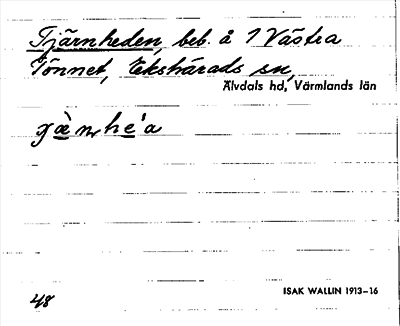 Tjärnheden, beb. å 1 Västra
Tönnet, Ekshärads sn,
Älvdals hd, Värmlands län
ISAK WALLIN 1913–16
48